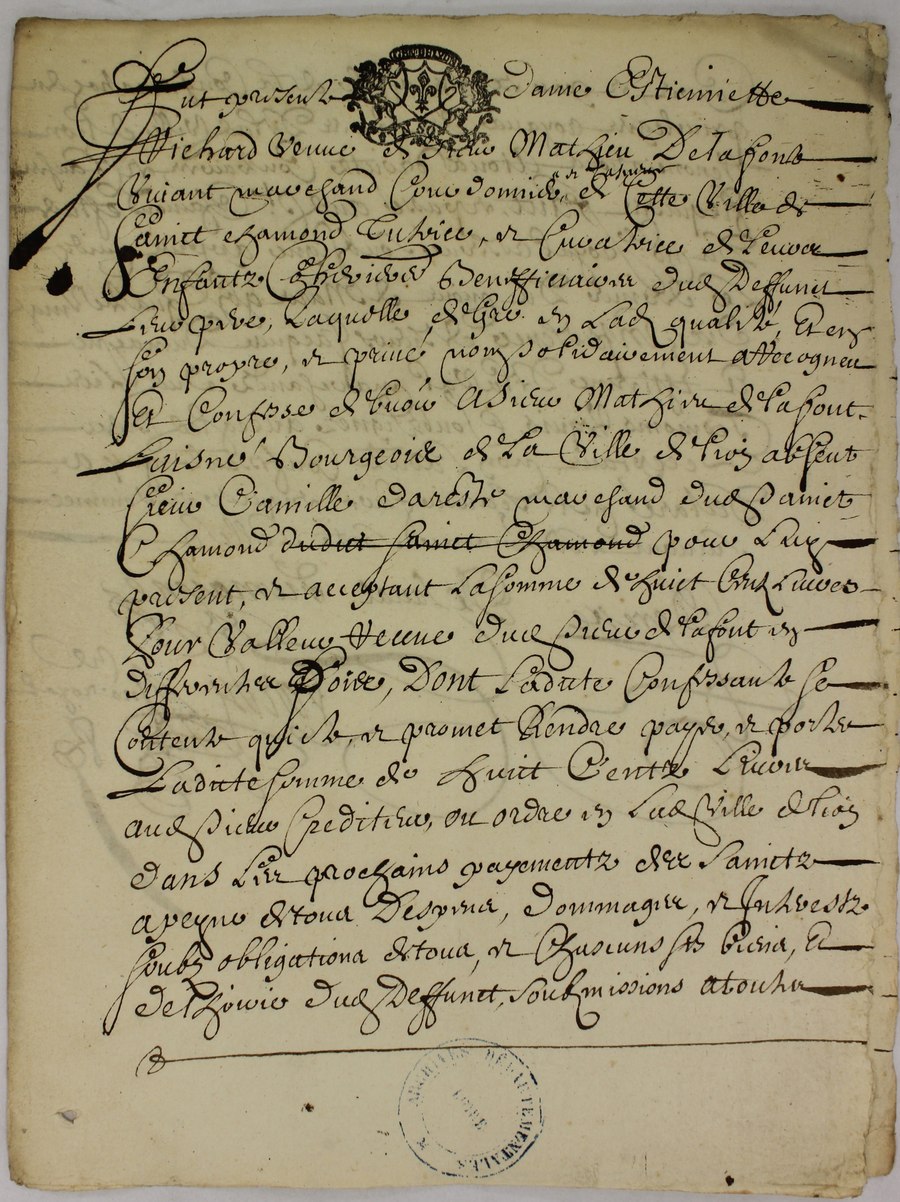 Fut presente dame Estiennette
Richard veuve de sieur Mathieu Delafont
vivant marchand Cordonnier de Cette Ville de
Sainct chamond Tutrice, et Curatrice de leurs
Enfantz & heritiers Benefficiaires dud Deffunct
Leur pere, Laquelle de gré en Lad qualité, Et en
son propre, et privé nom solidairement a Recogneu
Et Confesse debvoir a sieur Mathieu delafont
Laisné Bourgeois de La Ville de lion absent
sieur Camille dareste marchand dud Sainct
Chamond dudict Sainct Chamond pour Luy
present, et acceptant La somme de huict Centz Livres
Pour Valleur Receue dud sieur delafont en
differentes Fois, Dont Ladicte Confessante se
Contente quicte, et promet Rendre payer, et porter
Ladicte somme de huict Centz Livres
aud sieur Crediteur, ou ordre en Lad Ville de lion
dans Les prochains payementz des Sainctz
a peyne de tous Despens, dommages, et Interestz
soubz obligations de tous, et Chascuns ses biens, Et
de lhoirie dud Deffunct, soubmissions a toutes
ARCHIVES DÉPARTEMENTALES